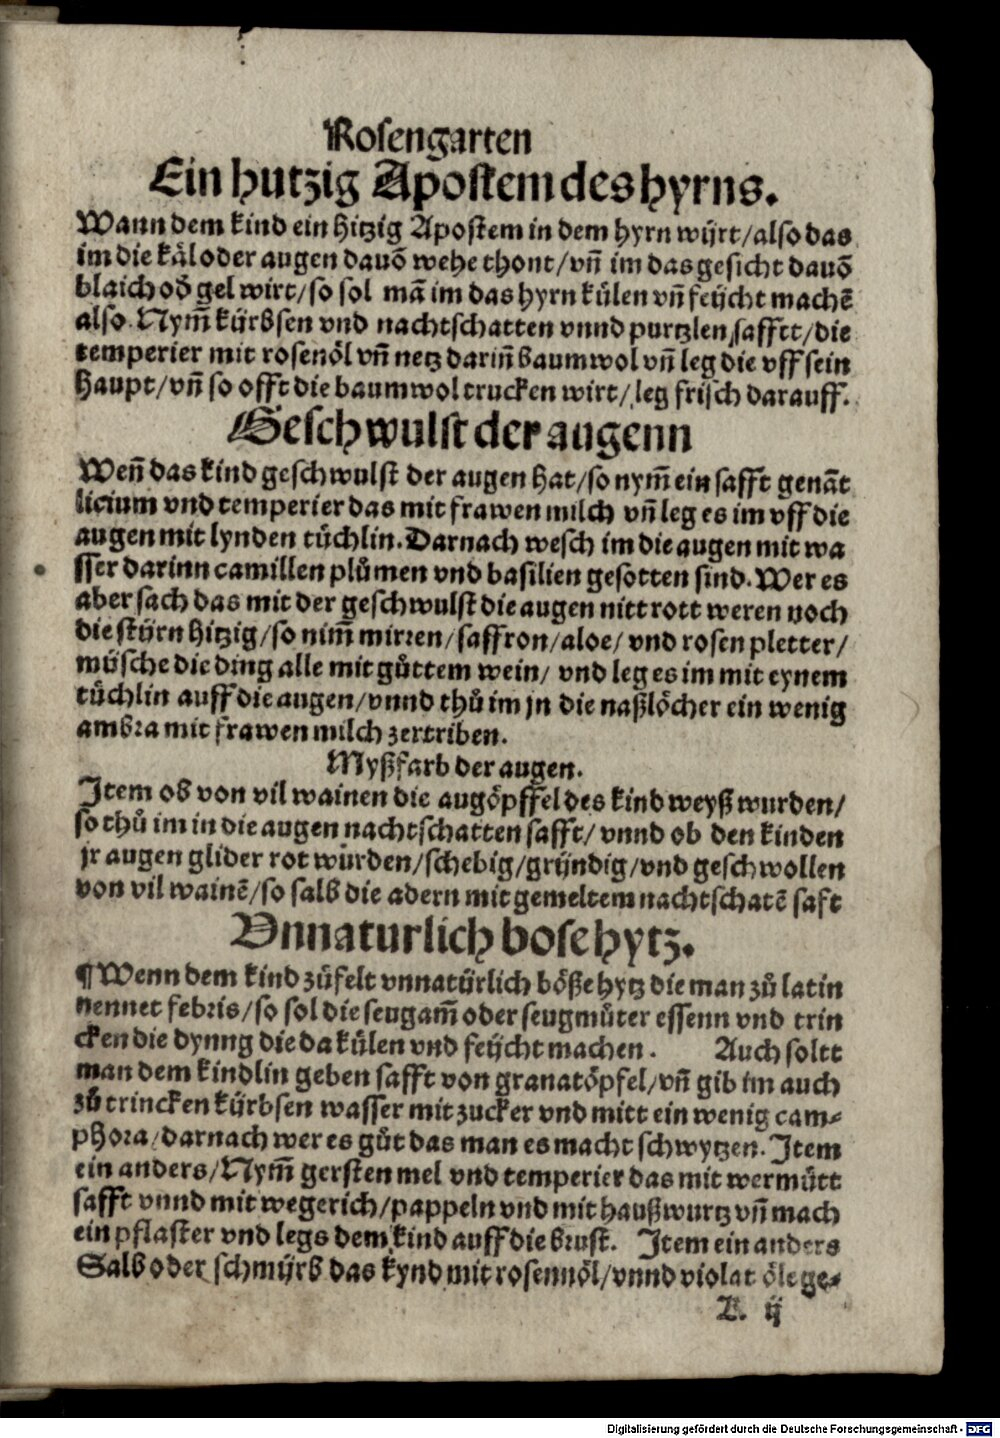 Rosengarten
Ein hutzig Apostem des hyrns.
Wann dem kind ein hitzig Apostem in dem hyrn wijrt/also das
im die käl oder augen dauõ wehe thont/vñ im das gesicht dauõ
blaich od̕ gel wirt/so sol mã im das hyrn külen vñ feijcht machẽ
also. Nym̃ kijrbsen vnd nachtschatten vnnd purtzlen safftt/die
temperier mit rosenöl vñ netz darin̄ baumwol vñ leg die vff sein
haupt/vñ so offt die baumwol trucken wirt/leg frisch darauff.
Geschwulst der augenn
Wen̄ das kind geschwulst der augen hat/so nym̃ ein safft genãt
licium vnd temperier das mit frawen milch vñ leg es im vff die
augen mit lynden tüchlin. Darnach wesch im die augen mit wa
sser darinn camillen plůmen vnd basilien gesotten sind. Wer es
aber sach das mit der geschwulst die augen nitt rott weren noch
die stijrn hitzig/so nim̃ mirren/saffron/aloe/ vnd rosen pletter/
müsche die ding alle mit gůttem wein/ vnd leg es im mit eynem
tüchlin auff die augen/vnnd thů im jn die naßlöcher ein wenig
ambra mit frawen milch zertriben.
Myßfarb der augen.
Item ob von vil wainen die augöpffel des kind weyß wurden/
so thů im in die augen nachtschatten safft/ vnnd ob den kinden
jr augen glider rot würden/schebig/grijndig/vnd geschwollen
von vil wainẽ/so salb die adern mit gemeltem nachtschatẽ saft
Vnnaturlich bose hytz.
¶ Wenn dem kind zůfelt vnnatürlich böße hytz die man zů latin
nennet febris/so sol die seugam̃ oder seugmůter essenn vnd trin
cken die dynng die da külen vnd feijcht machen. Auch soltt
man dem kindlin geben safft von granatöpfel/vñ gib im auch
zů trincken kijrbsen wasser mit zucker vnd mitt ein wenig cam⸗
phora/darnach wer es gůt das man es macht schwytzen. Item
ein anders/Nym̃ gersten mel vnd temperier das mit wermůtt
safft vnnd mit wegerich/pappeln vnd mit haußwurtz vñ mach
ein pflaster vnd legs dem kind auff die brust. Item ein anders
Salb oder schmijrb das kynd mit rosennöl/vnnd violat öle ge⸗
L. ij
Digitalisierung gefördert durch die Deutsche Forschungsgemeinschaft - DFG